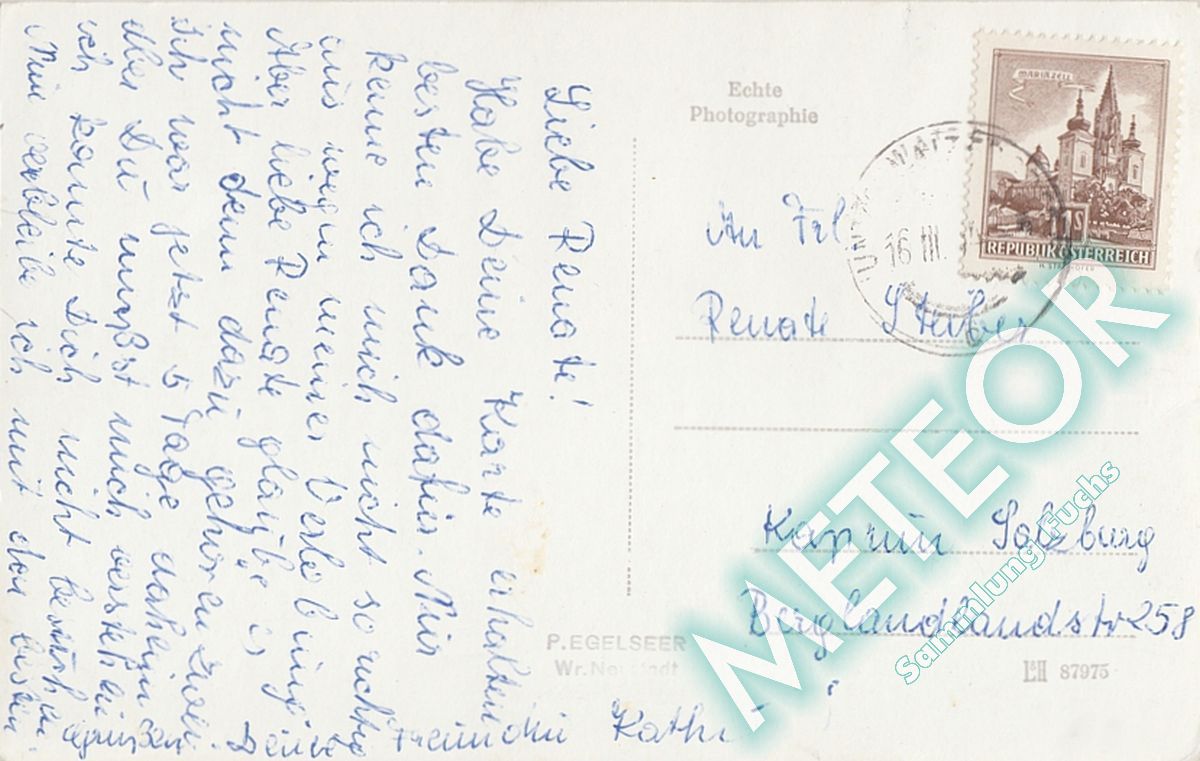 Liebe Renate!
Habe Deine Karte erhalten
besten Dank dafür. Nur
kenne ich mich nicht so recht
aus wegen meiner Verlobung
Aber liebe Renate glaube es
nicht denn dazu gehören zwei.
Ich war jetzt 5 Tage daheim
aber Du mußt mich verstehen
ich konnte Dich nicht besuchen
Nun verbleibe ich mit den besten
Grüßen Deine Freundin Kathi
Echte
Photographie
MARIAZELL
REPUBLIK ÖSTERREICH
16. III.
An Frl.
Renate Stüber
Kaprun Salzburg
Berglandlandstr 258
P. EGELSEER
Wr. Neustadt
87975
METEOR
Sammlung Fuchs